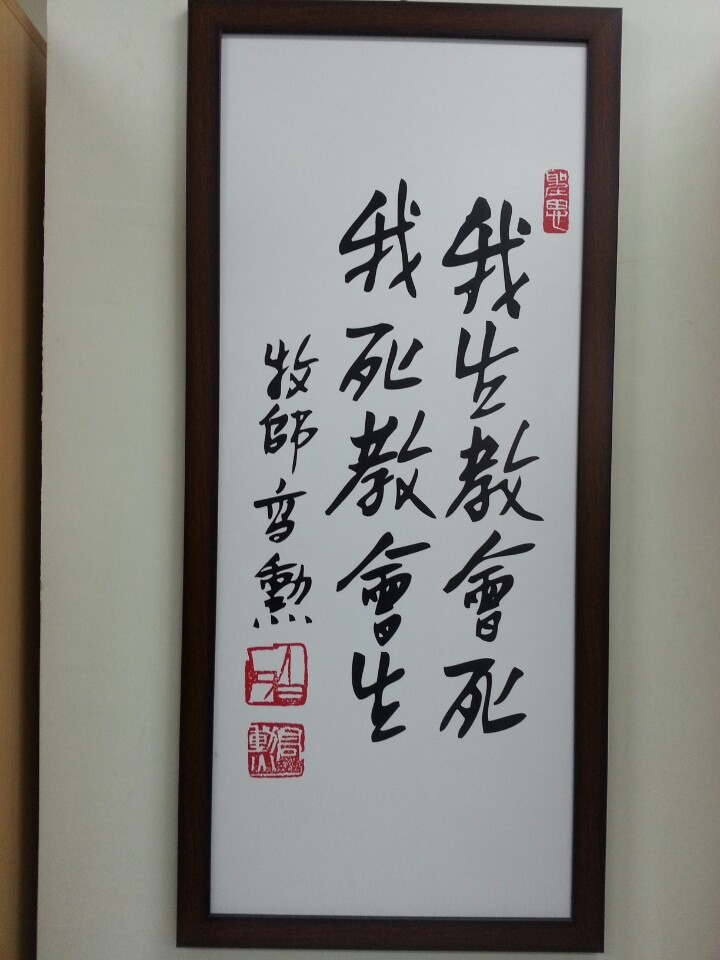 聖思
我生教會死
我死教會生
牧師高勳